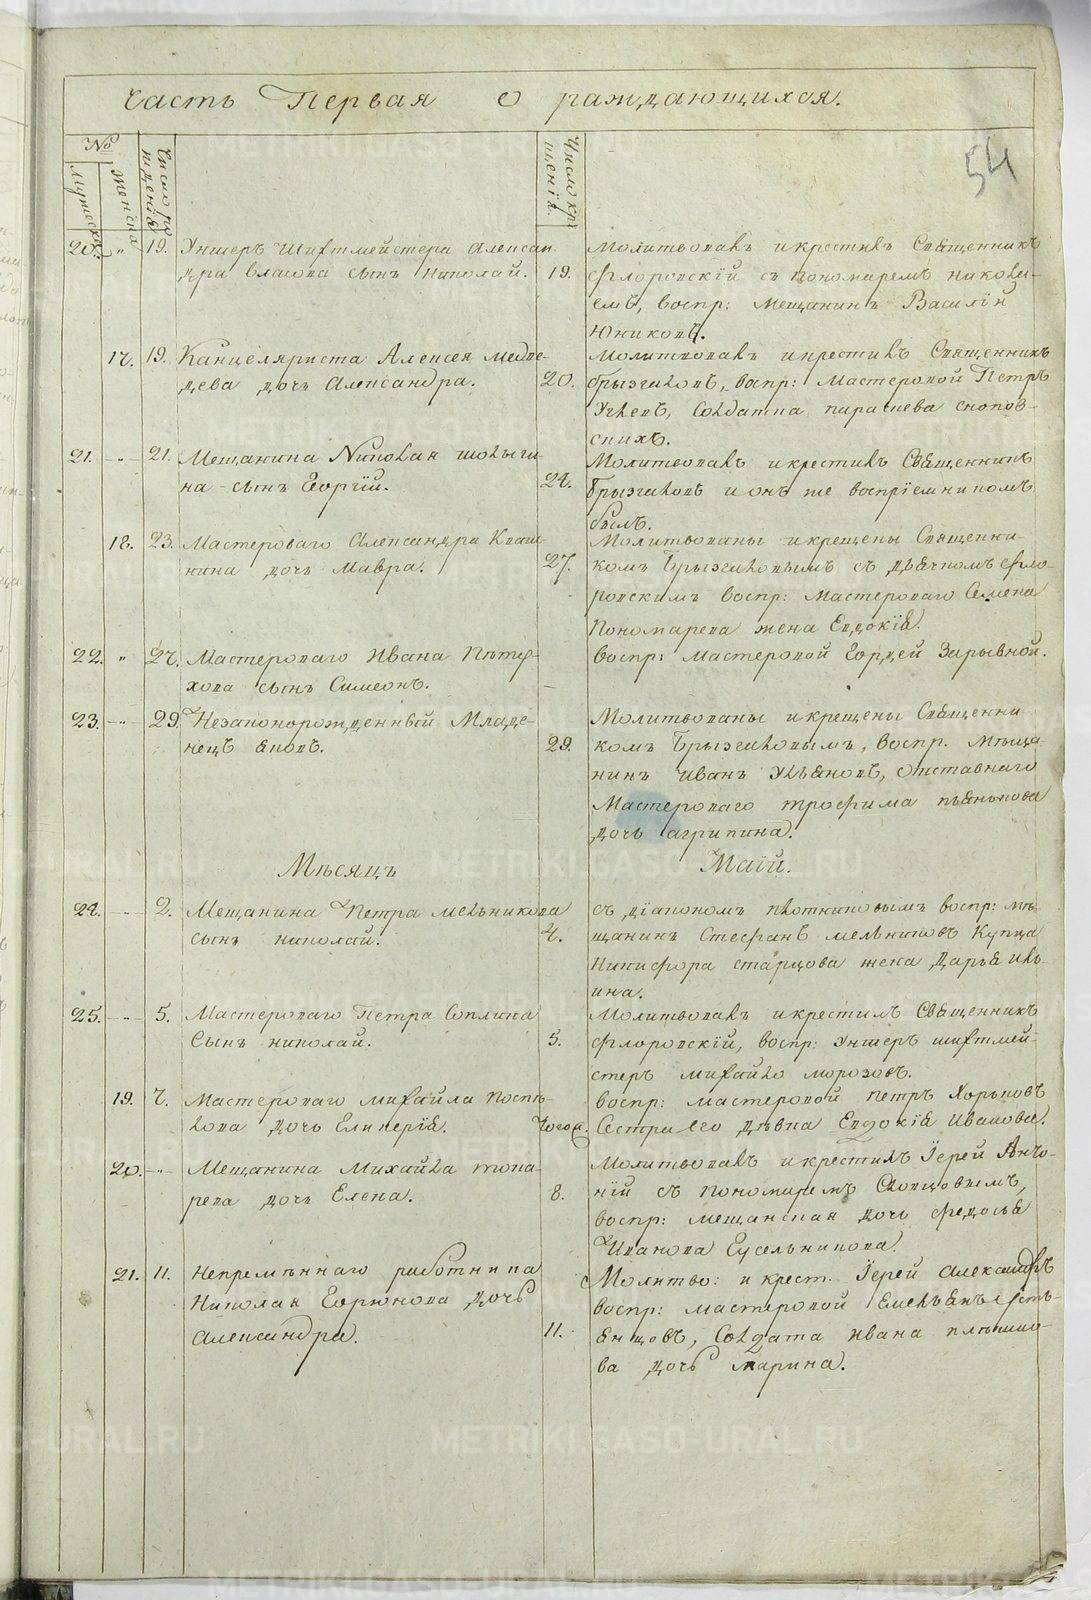 Часть Первая О раждающихся.
54
№
мужеска
женска
Число рождения
Число крещенія.
20. " 19. Унтеръ Шихтмейстера Алексан
дра Власова сынъ Николай. 19.
Молитвовалъ и крестилъ Священникъ
Флоровскій съ пономаремъ Никола-
емъ, воспр: мещанинъ Василій
Юниковъ.
17. 19. Канцеляриста Алексея Медве
дева дочь Александра. 20.
Молитвовалъ и крестилъ Священникъ
Брызгаловъ, воспр: Мастеровой Петръ
солдатка
21. -"- 21. Мещанина Николая Шолыги
на сынъ Георгій. 24.
Молитвовалъ и крестилъ Священникъ
Брызгаловъ и онъ же воспріемникомъ
былъ.
18. 23. Мастероваго Александра Кваш
нина дочь Мавра. 27.
Молитвованы и крещены Священни-
комъ Брызгаловымъ съ дьячкомъ Фло-
ровскимъ воспр: Мастероваго Семена
Пономарева жена Евдокія.
22. " 27. Мастероваго Ивана Пѣтер-
хова сынъ Симеонъ.
воспр: Мастеровой Гордей Зарывной.
23. -"- 29. Незаконорожденный Младе-
нецъ Яковъ. 29.
Молитвованы и крещены Священни-
комъ Брызгаловымъ, воспр. Мѣща-
нинъ Иванъ Ульяновъ, отставнаго
Мастероваго Трофима Пьянкова
дочь Агрипина.
Мѣсяцъ Маій.
24. -"- 2. Мещанина Петра Мельникова
сынъ Николай. 4.
съ діакономъ Плотниковымъ воспр: мѣ-
щанинъ Стефанъ Мельниковъ Купца
Никифора Старцова жена Дарья Иль
ина.
25. -"- 5. Мастероваго Петра Соплина
Сынъ Николай. 5.
Молитвовалъ и крестилъ Священникъ
Флоровскій, воспр: Унтеръ шихтмей-
стеръ Михайло Морозовъ.
19. 7. Мастероваго Михайла Поспѣ-
лова дочь Гликерія. тогож.
воспр: мастеровой Петръ Хорьковъ
Сестра его дѣвка Евдокія Иванова.
20. -"- Мещанина Михайла Тока-
рева дочь Елена. 8.
Молитвовалъ и крестилъ Іерей Анто-
ній съ пономаремъ Скопцовымъ,
воспр: мещанская дочь Федосья
Иванова Гусельникова.
21. 11. Непремѣннаго работника
Николая Горюнова дочь
Александра. 11.
Молитво: и крест. Іерей Александръ
воспр: мастеровой Емельянъ Усть-
янцовъ, Солдата Ивана Плѣшко-
ва дочь Марина.
METRIKI.GASO-URAL.RU